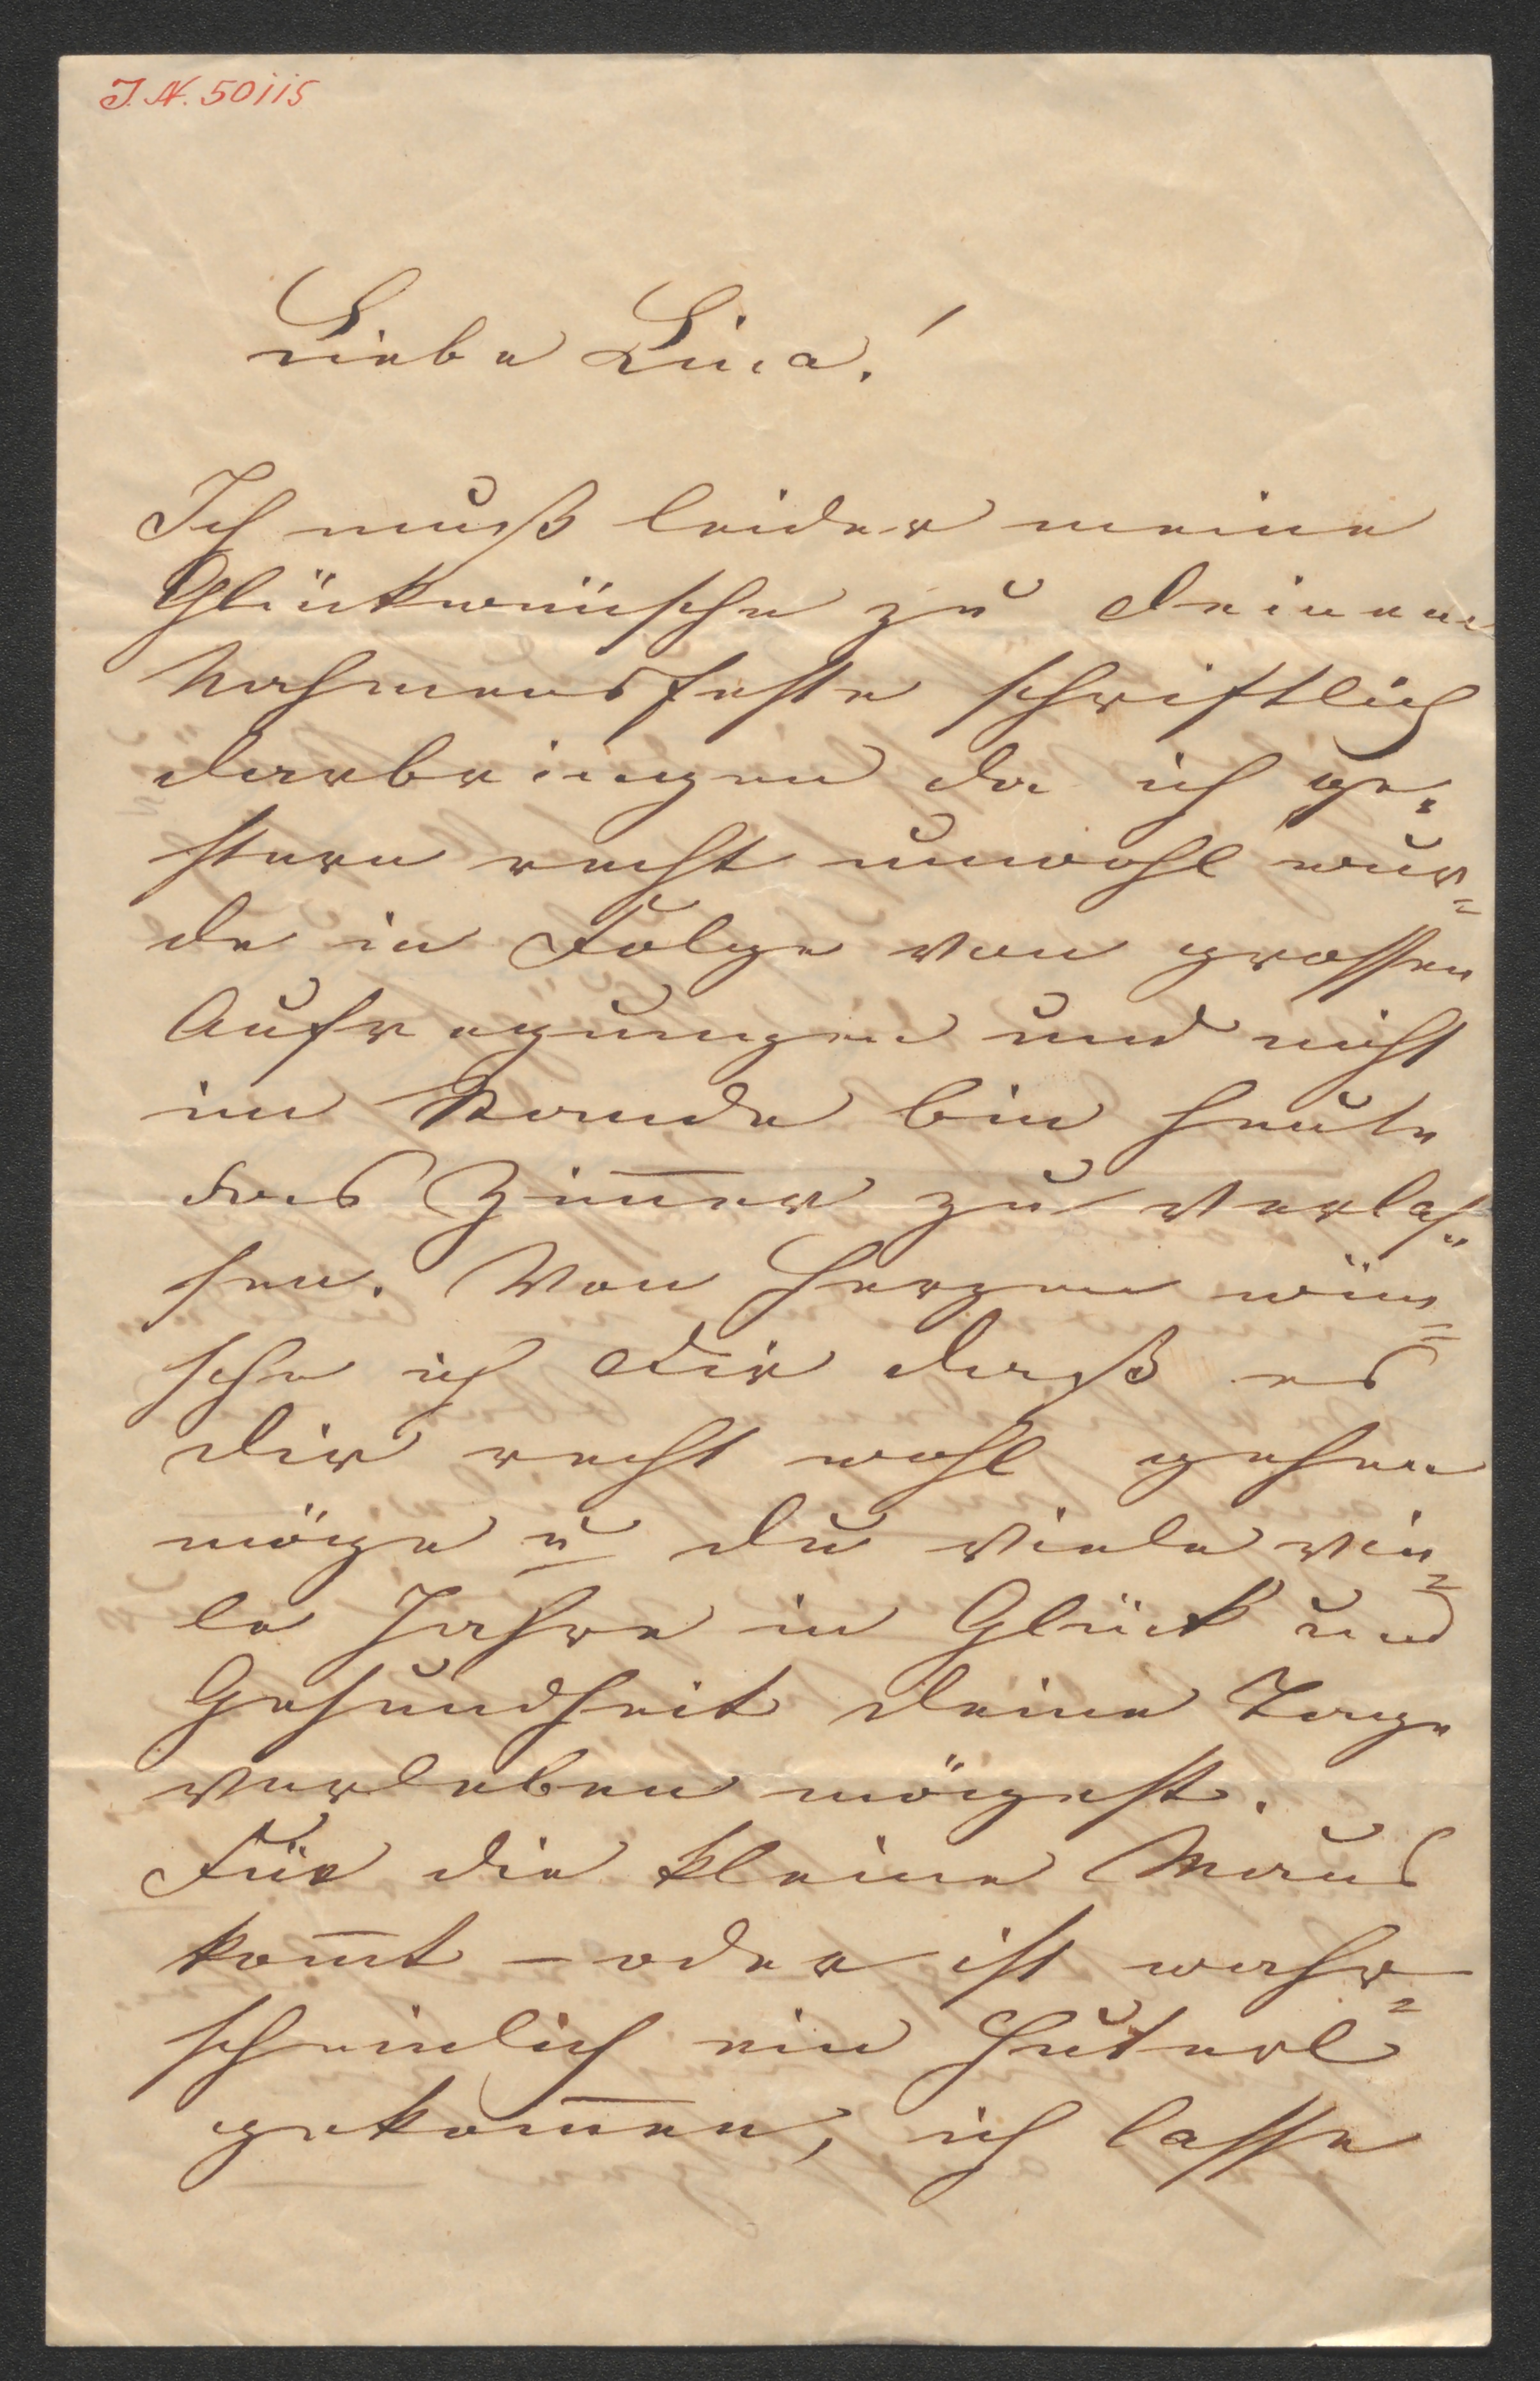 J. N. 50115
Liebe Lina!
Ich muß leider meine
Glückwünsche zu Deinem
Nahmensfeste schriftlich
darbringen da ich ge-
stern recht unwohl wur=
de in Folge von grossen
Aufregungen und nicht
im Stande bin heute
das Zim̅er zu verlas=
sen. Von Herzen wün=
sche ich Dir daß es
dir recht wohl gehen
möge u du viele vie=
le Jahre in Glück und
Gesundheit deine Tage
verleben mögest.
Für die kleine Maus
kom̅t – oder ist wahr=
scheinlich ein Huterl
gekom̅en, ich lasse